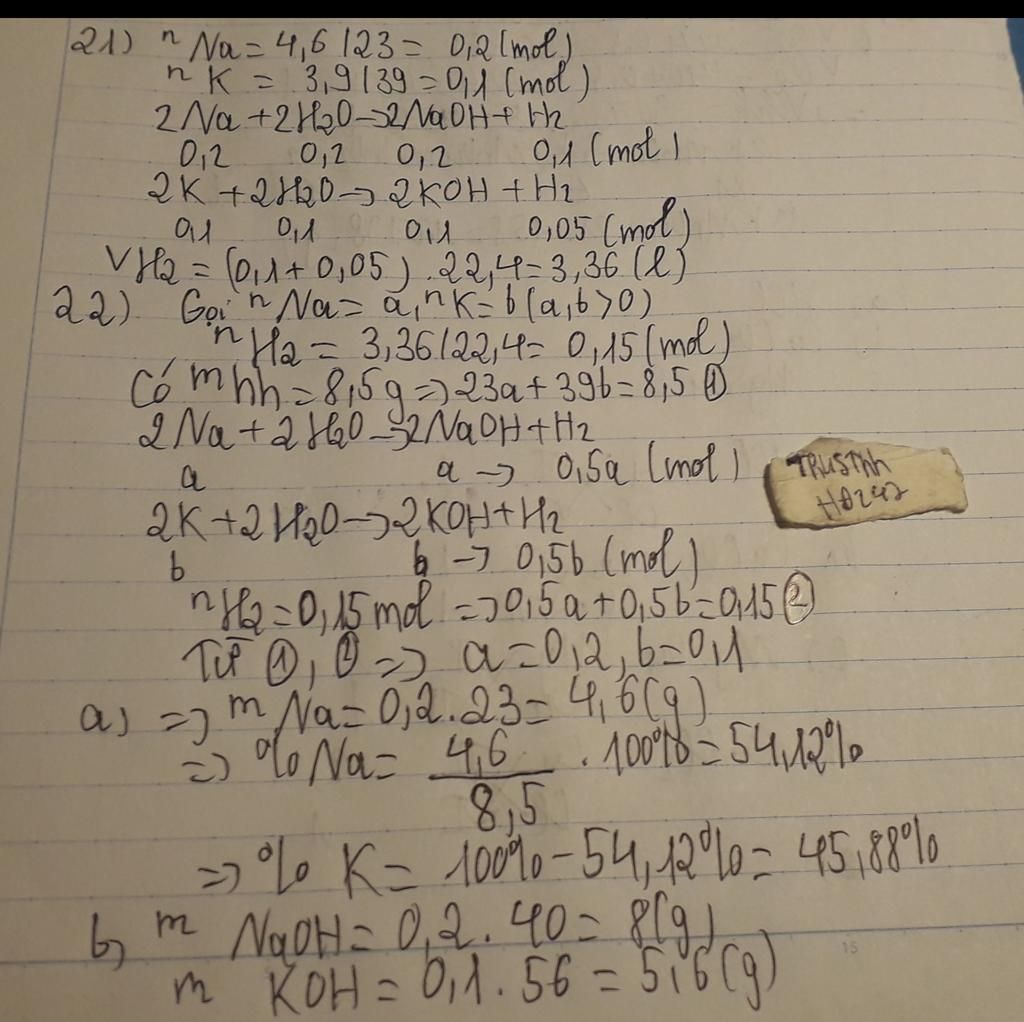 21) nNa = 4,6/23 = 0,2 (mol)
nK = 3,9/39 = 0,1 (mol)
2Na + 2H2O -> 2NaOH + H2
0,2 0,2 0,2 0,1 (mol)
2K + 2H2O -> 2KOH + H2
0,1 0,1 0,1 0,05 (mol)
VH2 = (0,1 + 0,05) . 22,4 = 3,36 (l)
22) Gọi nNa = a, nK = b (a,b > 0)
nH2 = 3,36/22,4 = 0,15 (mol)
Có mhh = 8,5g => 23a + 39b = 8,5 ①
2Na + 2H2O -> 2NaOH + H2
a a -> 0,5a (mol)
TRUSThh
HĐ247
2K + 2H2O -> 2KOH + H2
b b -> 0,5b (mol)
nH2 = 0,15 mol => 0,5a + 0,5b = 0,15 ②
Từ ①, ② => a = 0,2, b = 0,1
a) => mNa = 0,2 . 23 = 4,6 (g)
=> %Na = 4,6 / 8,5 . 100% = 54,12%
=> % K = 100% - 54,12% = 45,88%
b) m NaOH = 0,2 . 40 = 8 (g)
m KOH = 0,1 . 56 = 5,6 (g)
15